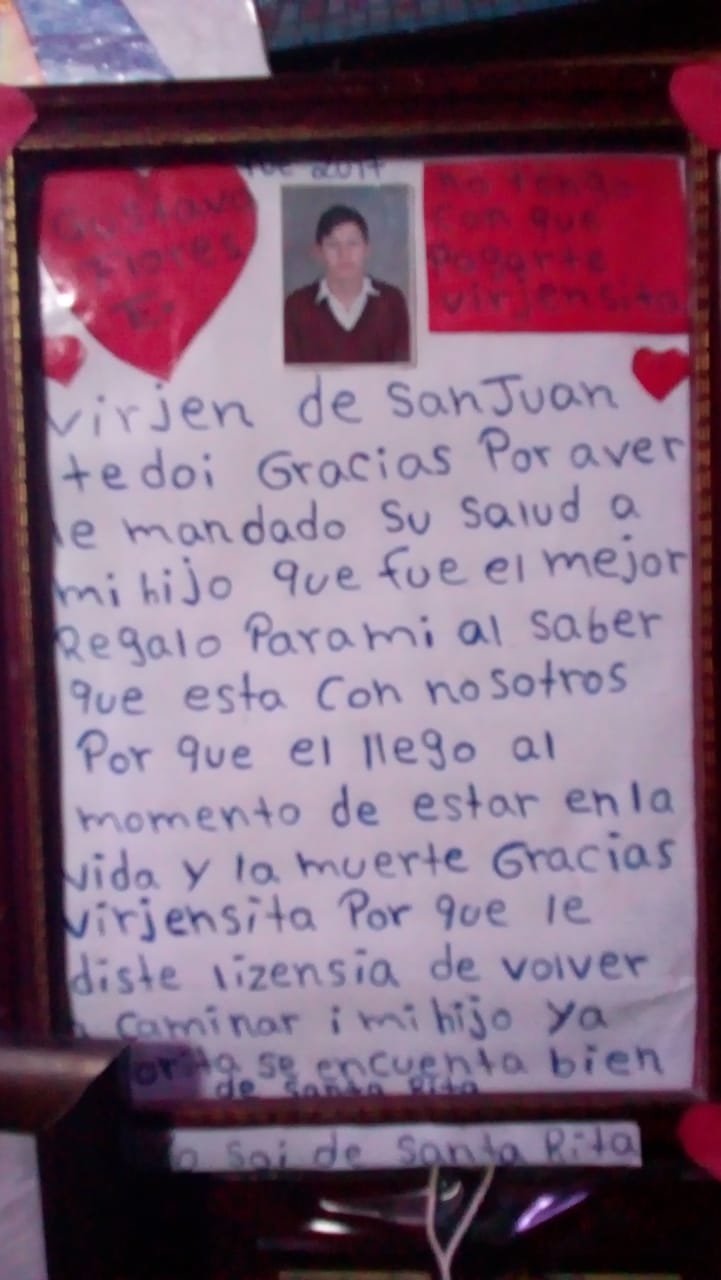 Fue 2017
Gustavo
Flores
no tengo
con que
Pagarte
virjensita
virjen de San Juan
te doi Gracias Por aver
le mandado Su Salud a
mi hijo que fue el mejor
Regalo Para mi al saber
que esta Con nosotros
Por que el llego al
momento de estar en la
vida y la muerte Gracias
virjensita Por que le
diste lizensia de volver
a caminar i mi hijo ya
se encuenta bien
de Santa Rita
o Soi de Santa Rita